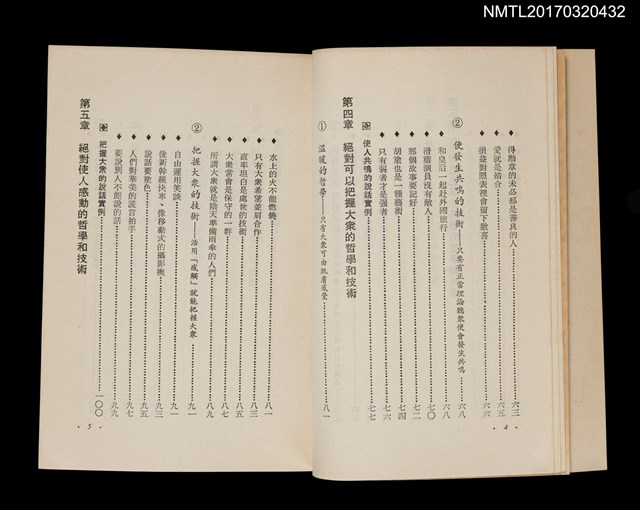 NMTL20170320432
◆ 得勳章的未必都是善良的人…………六三
◆ 愛就是結合…………六五
◆ 損益對照表裡會留下歡喜…………六六
② 使發生共鳴的技術——只要有正當理論聽衆便會發生共鳴……六八
◆ 和皇后一起赴外國旅行…………六八
◆ 滑稽演員沒有敵人…………七〇
◆ 那個故事要記好…………七二
◆ 胡塗也是一種藝術…………七四
◆ 只有弱者才是强者…………七六
使人共鳴的說話實例…………七七
第四章 絕對可以把握大衆的哲學和技術
① 溫暖的哲學——只有大衆可由肌膚感覺…………八一
· 4 ·
◆ 水上的火不能燃燒…………八一
◆ 只有大衆希望並肩合作…………八三
◆ 直率坦白是處世的技術…………八五
◆ 大衆常會是保守的一群…………八七
◆ 所謂大衆就是陰天準備雨傘的人們…………八九
② 把握大衆的技術——活用「感觸」就能把握大衆…………九一
◆ 自由運用笑談…………九一
◆ 像新幹線快車、像移動式的攝影機…………九三
◆ 說話要塗色…………九五
◆ 人們對華美的謊言拍手…………九七
◆ 要說別人不能說的話…………九九
把握大衆的說話實例…………一〇〇
第五章 絕對使人感動的哲學和技術
· 5 ·